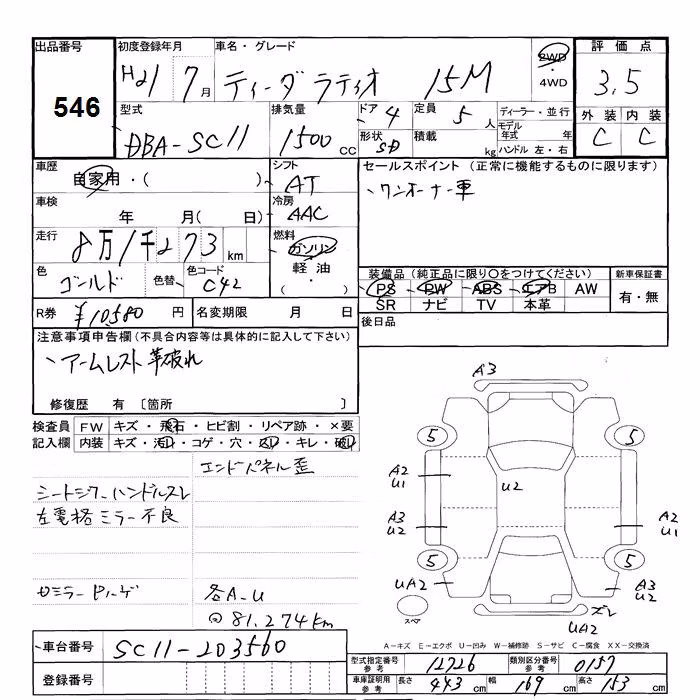 出品番号 初度登録年月 車名・グレード 2WD ・ 4WD 評価点
546 H21 7月 ティーダラティオ 15M 3.5
外装 内装
C C
型式 排気量 ドア 4 定員 5人 ディーラー・並行
DBA-SC11 1500cc 形状 SD 積載 kg モデル年式 年
ハンドル 左・右
車歴 自家用・( ) シフト AT
セールスポイント(正常に機能するものに限ります)
、ワンオーナー車
車検 年 月( 日) 冷房 AAC
走行 8万1千273km 燃料 ガソリン・軽油・( )
色 ゴールド 色替 色コード C42
装備品(純正品に限り○をつけてください) 新車保証書
PS PW ABS エアB AW 有・無
SR ナビ TV 本革
R券 ¥10,580円 名変期限 月 日 後日品
注意事項申告欄(不具合内容等は具体的に記入して下さい)
、アームレスト革破れ
修復歴 有〔箇所 〕
検査員記入欄 FW キズ・飛石・ヒビ割・リペア跡・×要
内装 キズ・汚レ・コゲ・穴・スレ・キレ・破レ
エンドパネル歪
シートシワ ハンドルスレ
左電格ミラー不良
各A-U
◎81,274km
A3
5 5
A2 U1
U2
A3 U2
A2 U1
5 5
UA2
A3 U2
スペア
ズレ
UA2
A-キズ E-エクボ U-凹み W-補修跡 S-サビ C-腐食 XX-交換済
車台番号 SC11-203560
型式指定番号 参考 12726 類別区分番号 参考 0157
登録番号
車庫証明用 参考 長さ 443cm 幅 169cm 高さ 153cm